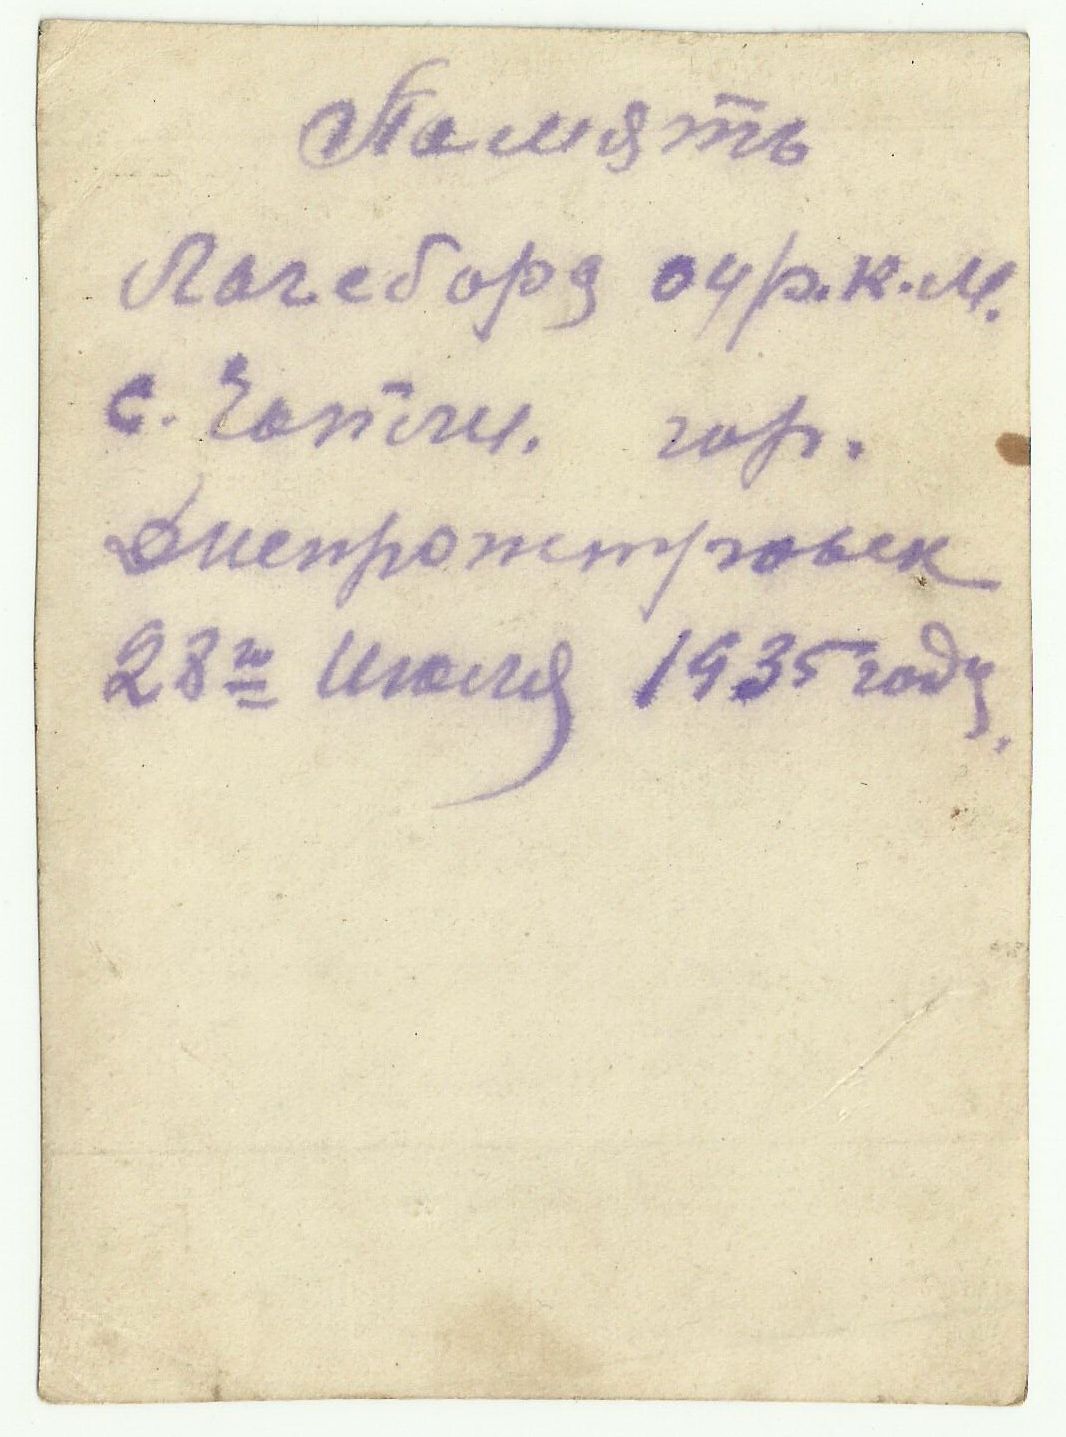 Память
Лагсборд окр.к.м.
с. Чапли. гор.
Днепропетровск
28го Июля 1935 году.